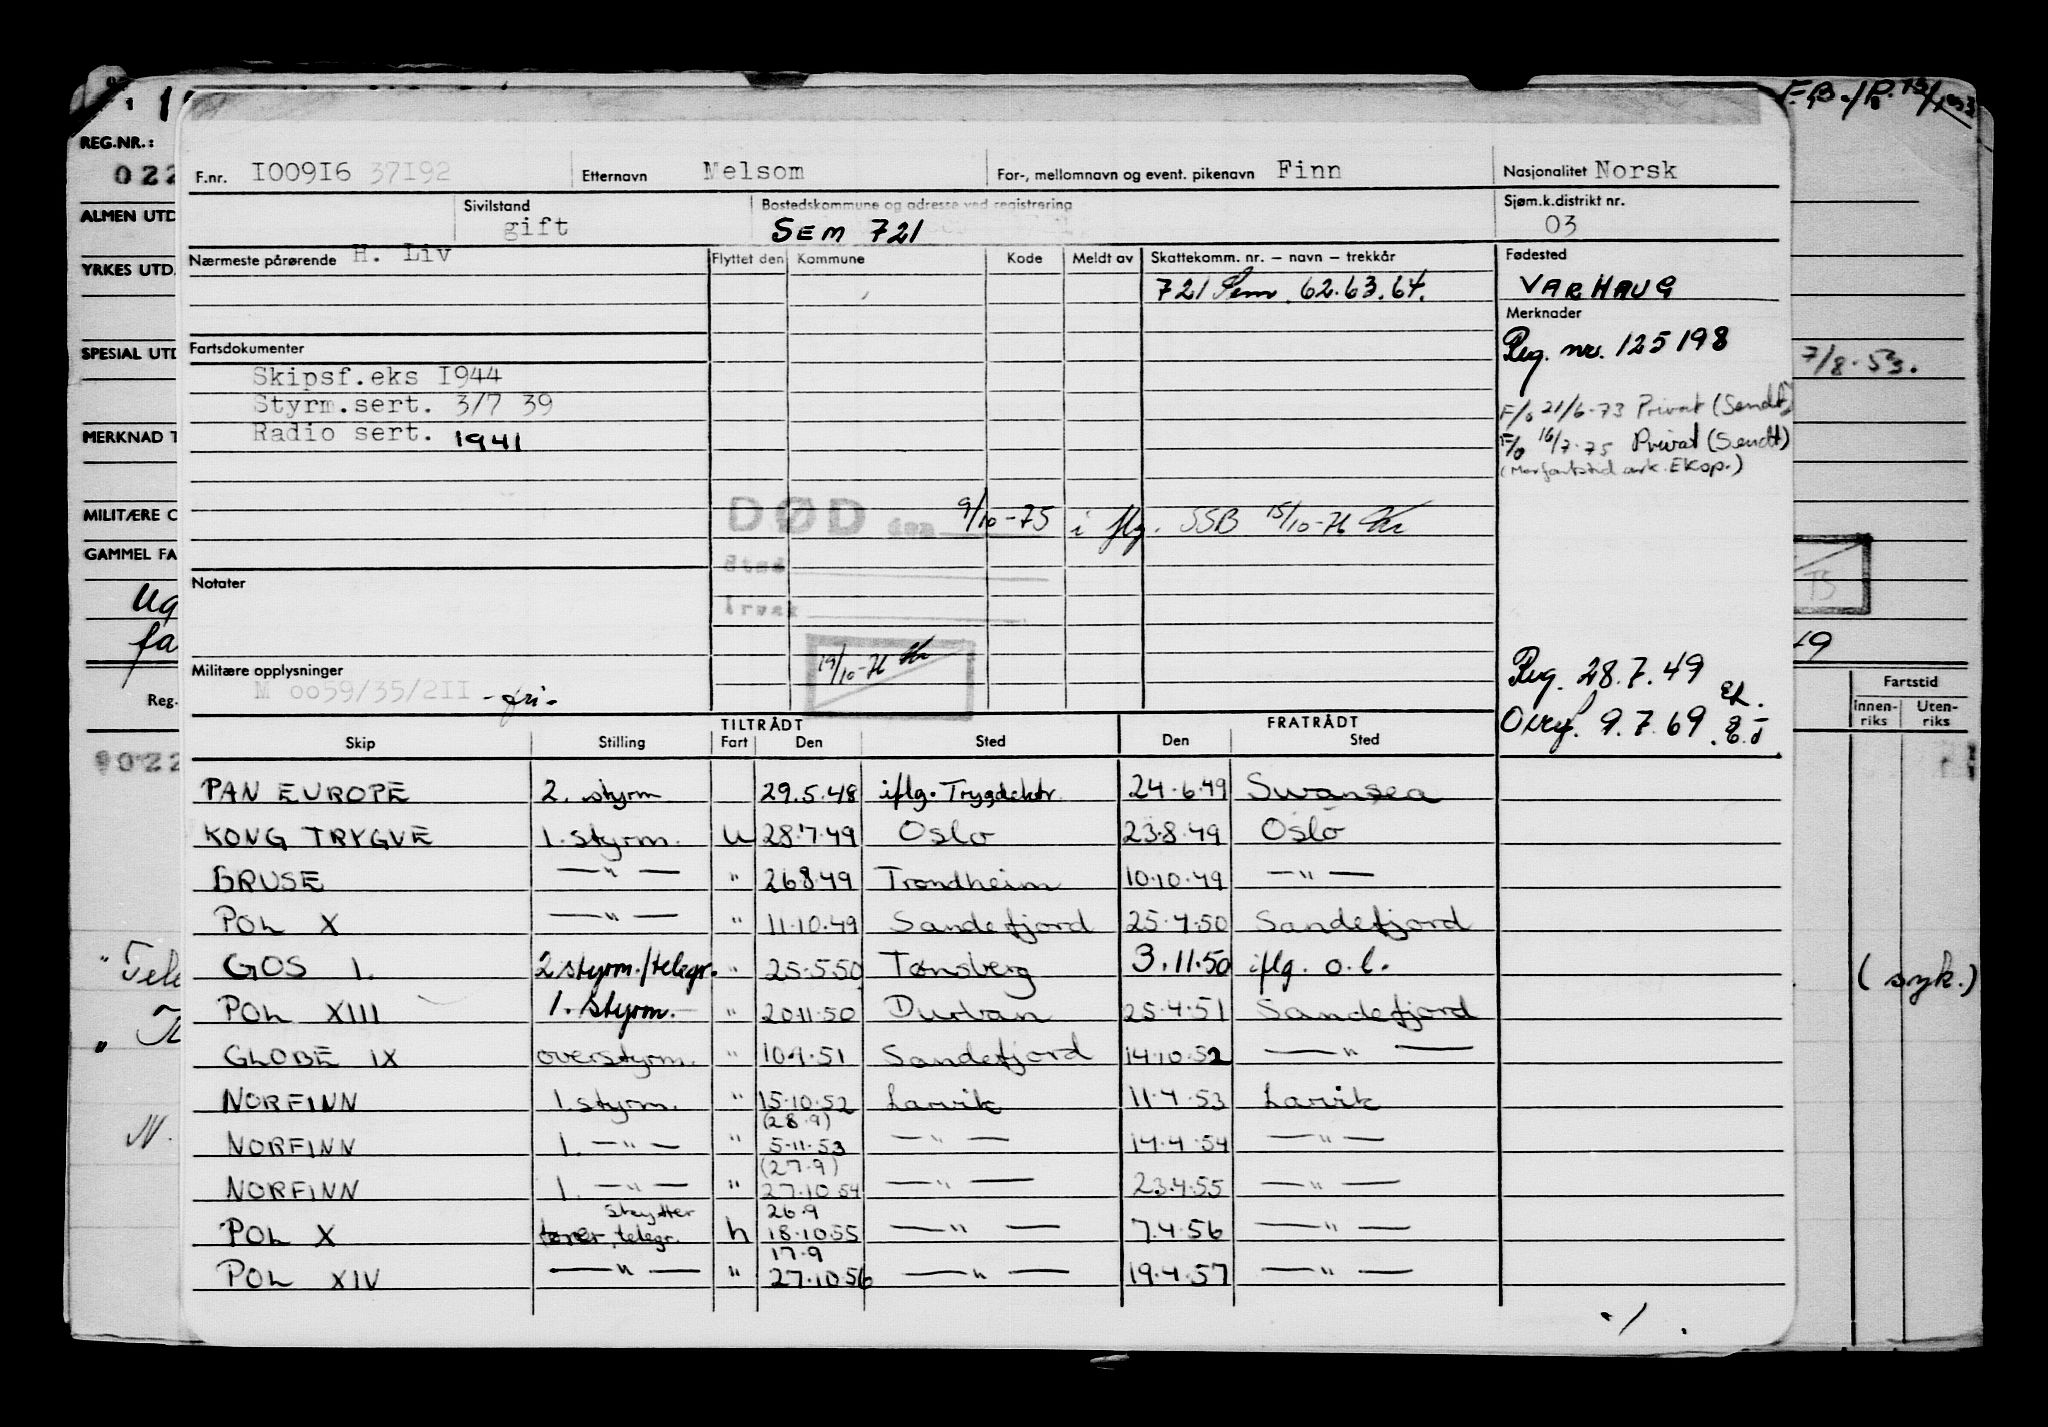 F.B./R. 13/1953
REG.NR.:
022
ALMEN UTD
YRKES UTD.
SPESIAL UTD
7/8-53.
MERKNAD T
MILITÆRE O
GAMMEL FA
fa
Reg.
Fartstid
Innen-riks Uten-riks
9022
(syk.)
F.nr. I009I6 37I92 Etternavn Melsom For-, mellomnavn og event. pikenavn Finn Nasjonalitet Norsk
Sivilstand gift Bostedskommune og adresse ved registrering SEM 721 Sjøm.k.distrikt nr. 03
Nærmeste pårørende H. Liv Flyttet den Kommune Kode Meldt av Skattekomm. nr. – navn – trekkår Fødested
721 Sem 62.63.64. VARHAUG
Merknader
Reg. nr. 125198
Fartsdokumenter
Skipsf.eks I944
Styrm.sert. 3/7 39
Radio sert. 1941
F/o 21/6-73 Privat (Sendt)
F/o 16/7-75 Privat (Sendt)
DØD den 9/10-75 i flg. SSB 15/10-76
Sted
Årsak
Notater
19/10-76
Militære opplysninger
M 0059/35/2II -fri-
Reg. 28.7.49
Overf. 9.7.69
TILTRÅDT FRATRÅDT
Skip Stilling Fart Den Sted Den Sted
PAN EUROPE 2. styrm 29.5.48 iflg. Trygdektr. 24.6.49 Swansea
KONG TRYGVE 1. styrm. u 28.7.49 Oslo 23.8.49 Oslo
BRUSE — " — " 26.8.49 Trondheim 10.10.49 — " —
POL X — " — " 11.10.49 Sandefjord 25.4.50 Sandefjord
GOS 1. 2 styrm./telegr. " 25.5.50 Tønsberg 3.11.50 iflg. o.l.
POL XIII 1. styrm. " 20.11.50 Durban 25.4.51 Sandefjord
GLOBE IX overstyrm. " 10.9.51 Sandefjord 14.10.52 — " —
NORFINN 1. styrm. " 15.10.52 Larvik 11.4.53 Larvik
(28.9)
NORFINN 1. — " — " 5.11.53 — " — 14.4.54 — " —
(27.9)
NORFINN 1. — " — " 27.10.54 — " — 23.4.55 — " —
skytter 26.9
POL X telegr. h 18.10.55 — " — 7.4.56 — " —
17.9
POL XIV — " — " 27.10.56 — " — 19.4.57 — " —
./.